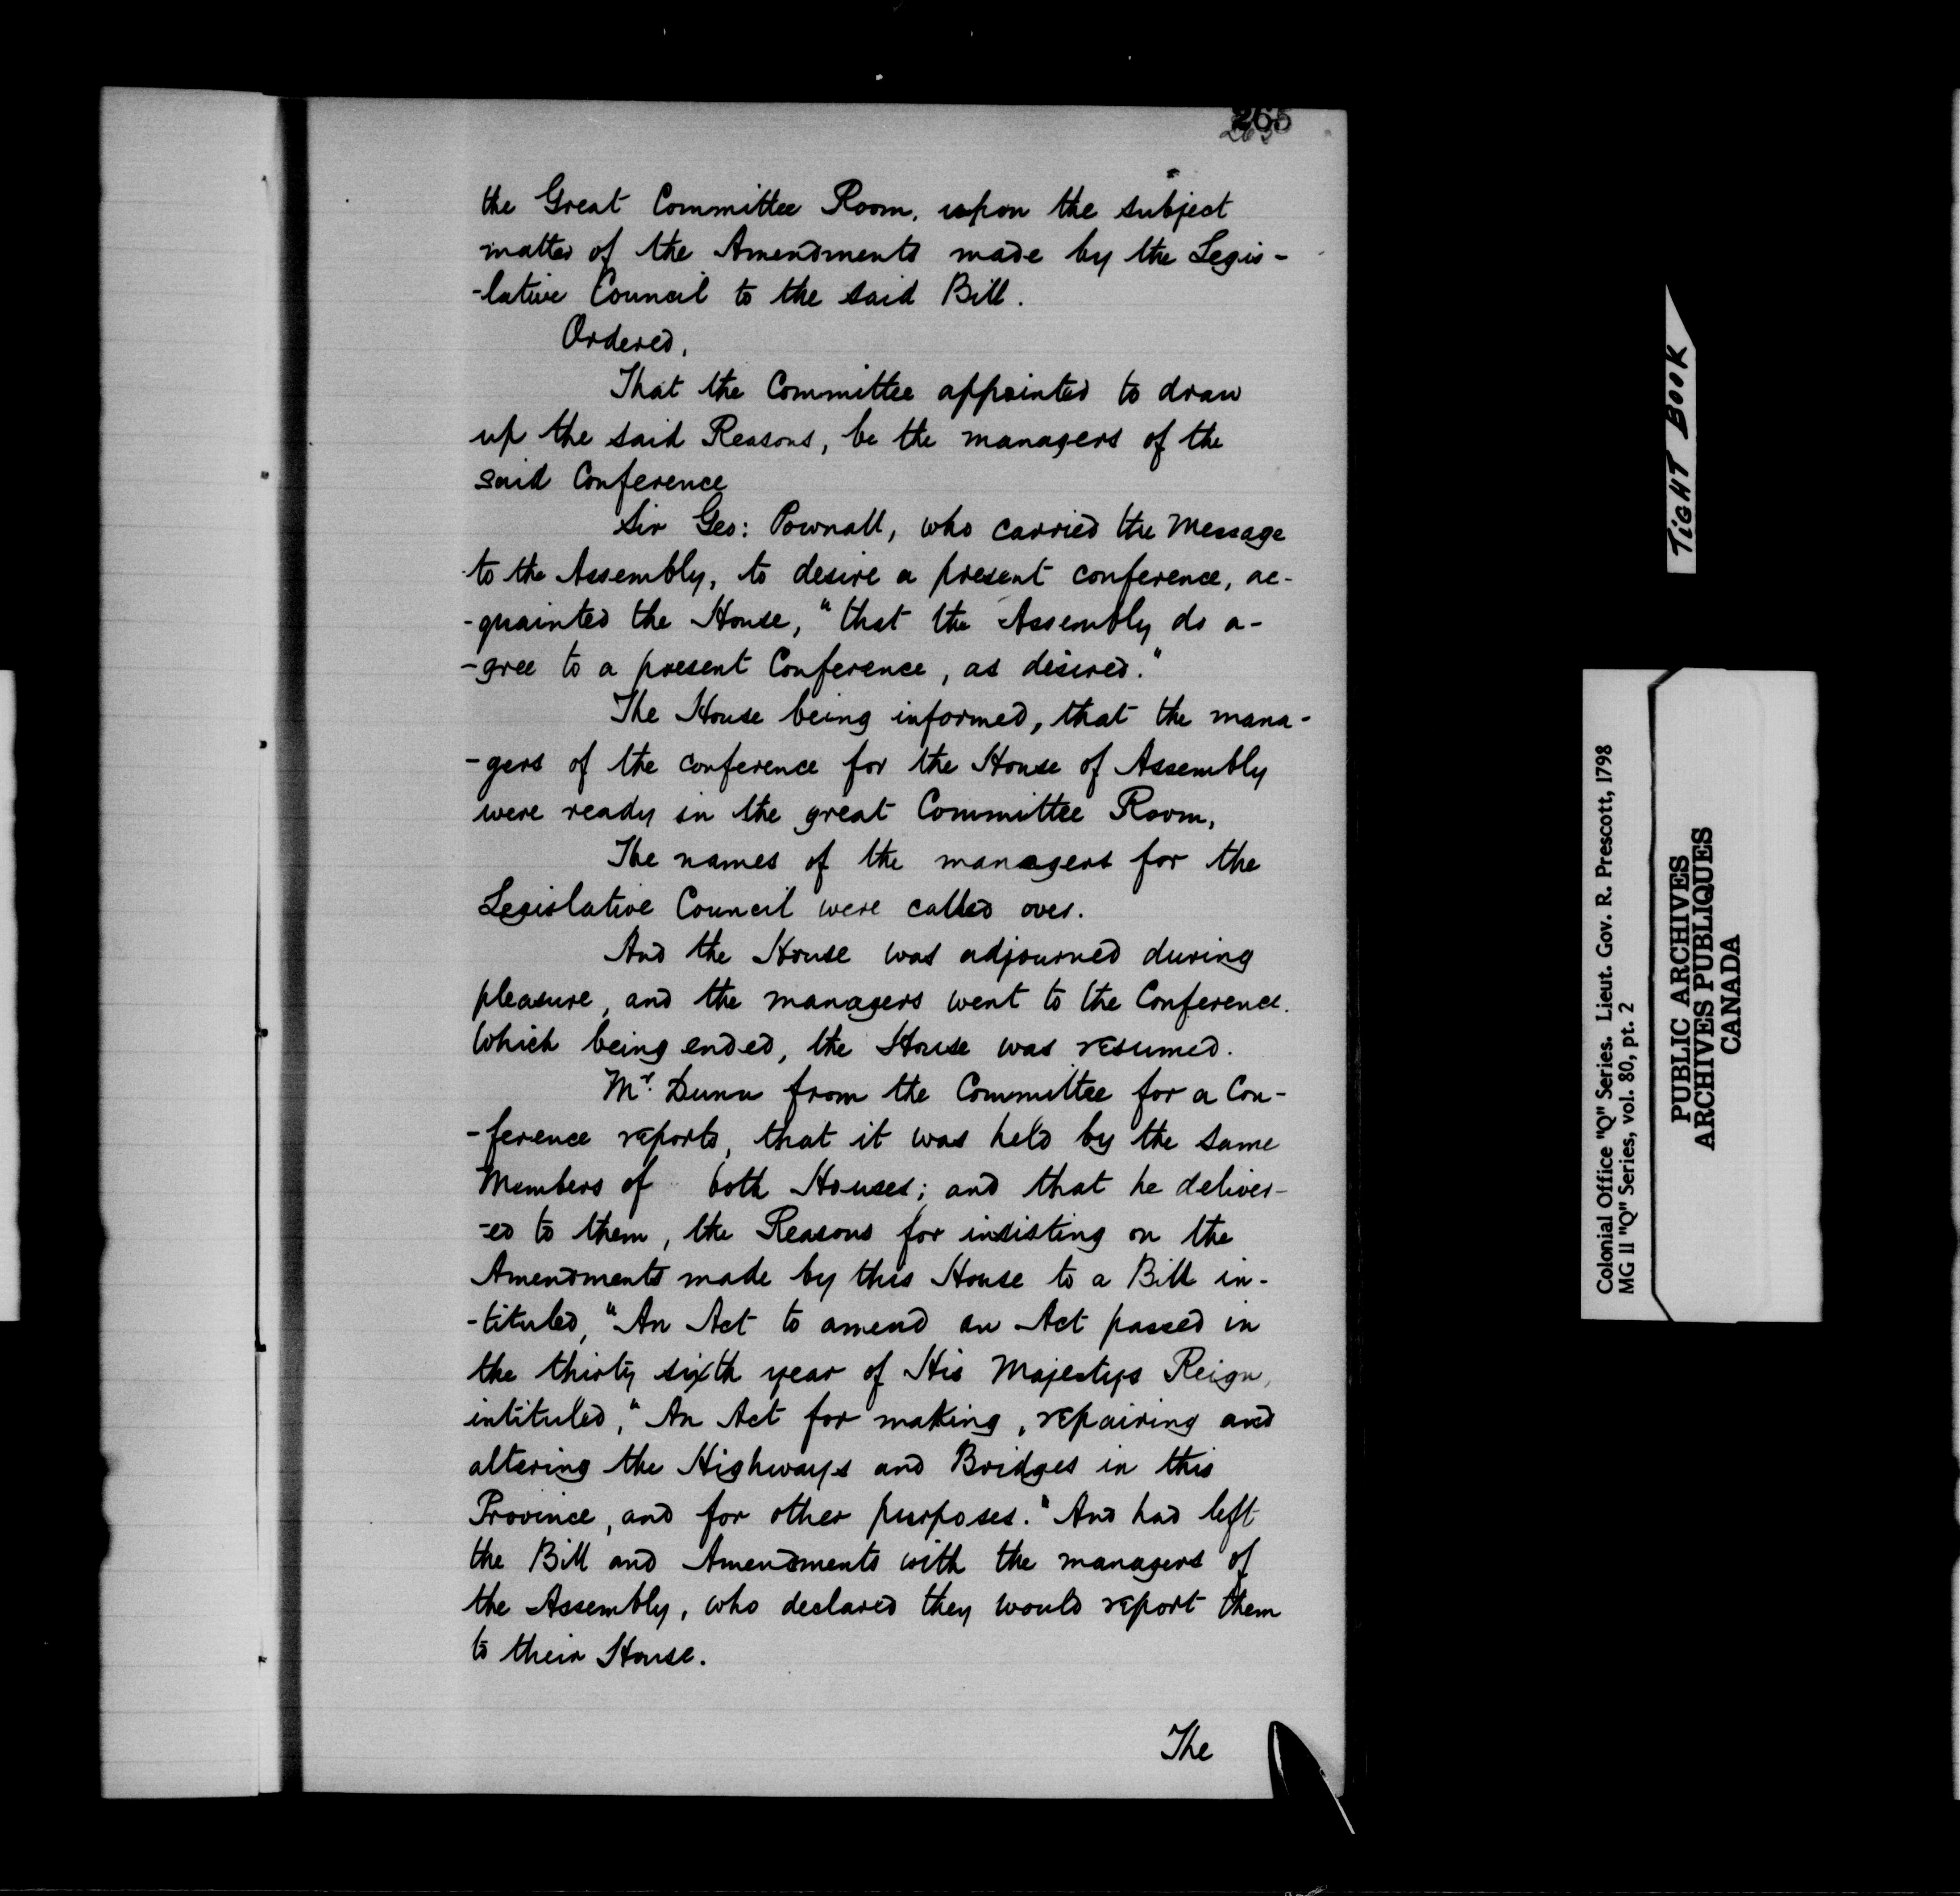 265
the Great Committee Room, upon the subject
matter of the Amendments made by the Legis-
-lative Council to the said Bill.
Ordered,
That the Committee appointed to draw
up the said Reasons, be the managers of the
said Conference
Sir Geo: Pownall, who carried the Message
to the Assembly, to desire a present conference, ac-
-quainted the House, "that the Assembly do a-
-gree to a present Conference, as desired."
The House being informed, that the mana-
-gers of the conference for the House of Assembly
were ready in the great Committee Room,
The names of the managers for the
Legislative Council were called over.
And the House was adjourned during
pleasure, and the managers went to the Conference.
Which being ended, the House was resumed.
Mr. Dunn from the Committee for a Con-
-ference reports, that it was held by the same
Members of both Houses; and that he deliver-
-ed to them, the Reasons for insisting on the
Amendments made by this House to a Bill in-
-tituled, "An Act to amend an Act passed in
the thirty sixth year of His Majestys Reign,
intituled, "An Act for making, repairing and
altering the Highways and Bridges in this
Province, and for other purposes." And had left
the Bill and Amendments with the managers of
the Assembly, who declared they would report them
to their House.
The
TIGHT BOOK
Colonial Office "Q" Series. Lieut. Gov. R. Prescott, 1798
MG II "Q" Series, vol. 80, pt. 2
PUBLIC ARCHIVES
ARCHIVES PUBLIQUES
CANADA